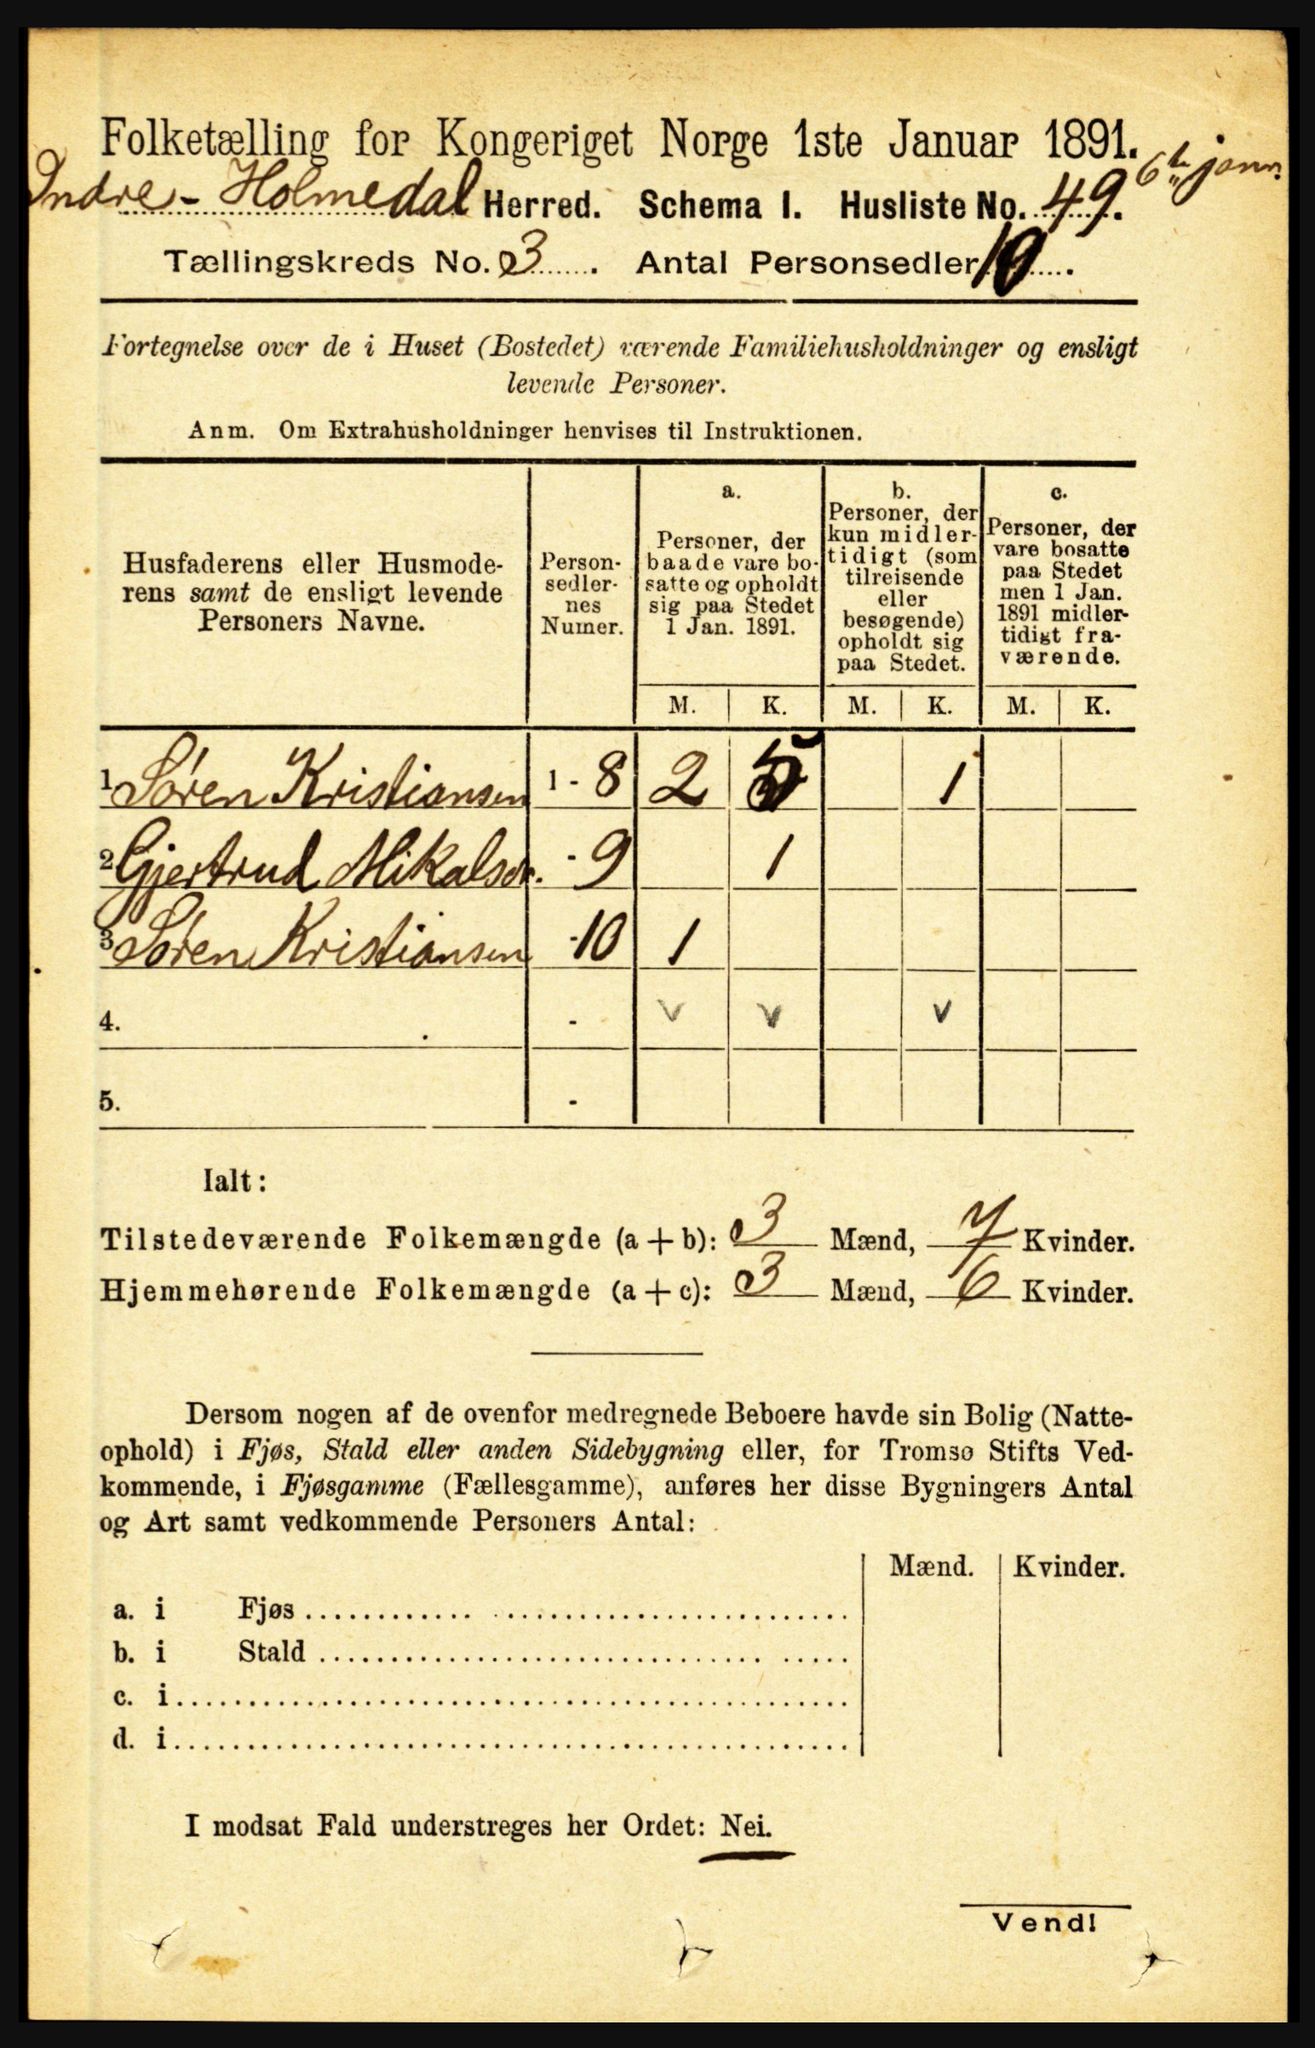 Folketælling for Kongeriget Norge 1ste Januar 1891.
6te jann.
Indre-Holmedal Herred. Schema I. Husliste No. 49.
Tællingskreds No. 3. Antal Personsedler 10.
Fortegnelse over de i Huset (Bostedet) værende Familiehusholdninger og ensligt
levende Personer.
Anm. Om Extrahusholdninger henvises til Instruktionen.
Husfaderens eller Husmode-
rens samt de ensligt levende
Personers Navne.
Person-
sedler-
nes
Numer.
a.
Personer, der
baade vare bo-
satte og opholdt
sig paa Stedet
1 Jan. 1891.
b.
Personer, der
kun midler-
tidigt (som
tilreisende
eller
besøgende)
opholdt sig
paa Stedet.
c.
Personer, der
vare bosatte
paa Stedet
men 1 Jan.
1891 midler-
tidigt fra-
værende.
M. K. M. K. M. K.
1 Søren Kristiansen 1 - 8 2 5 1
2 Gjertrud Mikalsdr. - 9 1
3 Søren Kristiansen - 10 1
4. - v v v
5. -
Ialt:
Tilstedeværende Folkemængde (a + b): 3 Mænd, 7 Kvinder.
Hjemmehørende Folkemængde (a + c): 3 Mænd, 6 Kvinder.
Dersom nogen af de ovenfor medregnede Beboere havde sin Bolig (Natte-
ophold) i Fjøs, Stald eller anden Sidebygning eller, for Tromsø Stifts Ved-
kommende, i Fjøsgamme (Fællesgamme), anføres her disse Bygningers Antal
og Art samt vedkommende Personers Antal:
Mænd. Kvinder.
a. i Fjøs
b. i Stald
c. i
d. i
I modsat Fald understreges her Ordet: Nei.
Vend!